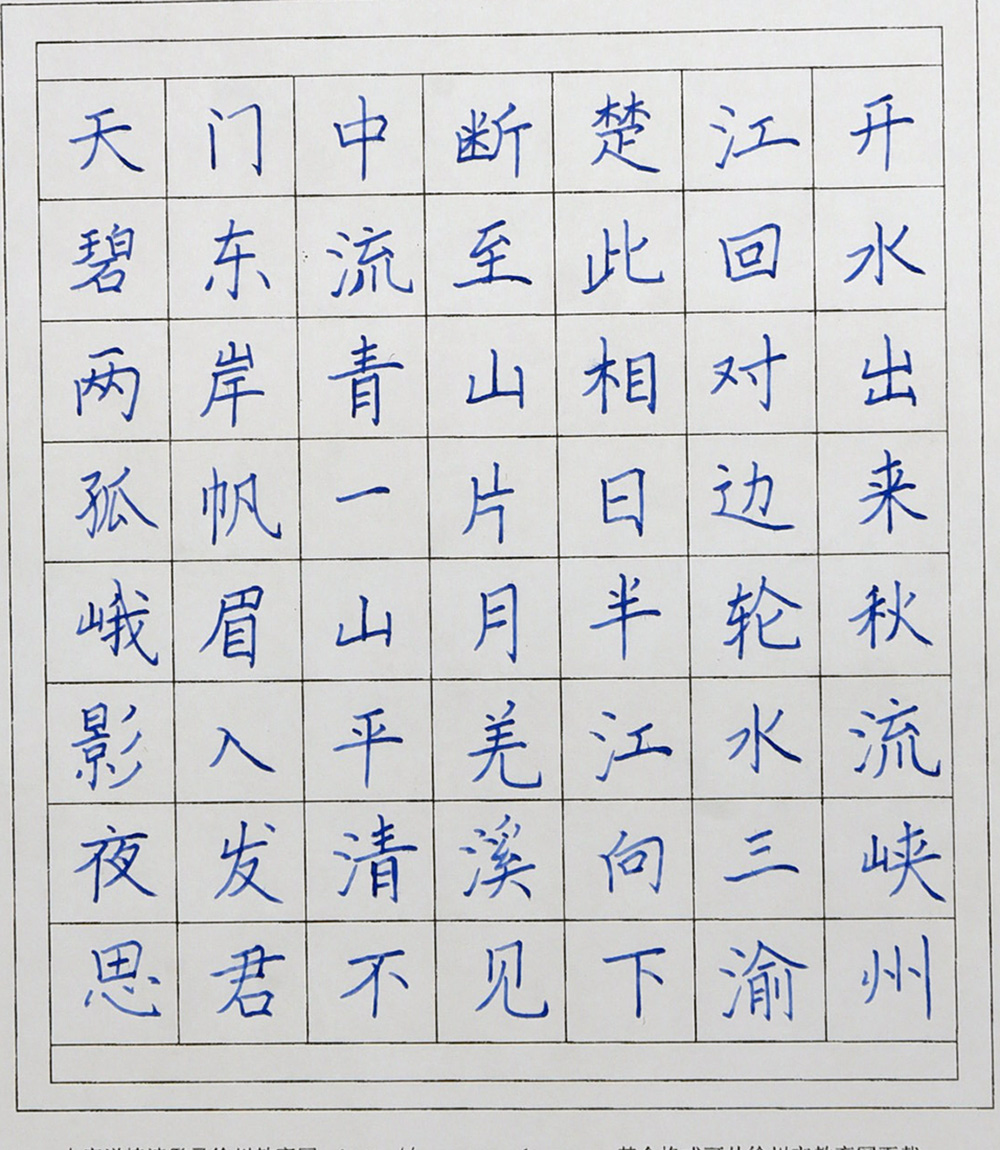 天门中断楚江开
碧东流至此回水
两岸青山相对出
孤帆一片日边来
峨眉山月半轮秋
影入平羌江水流
夜发清溪向三峡
思君不见下渝州